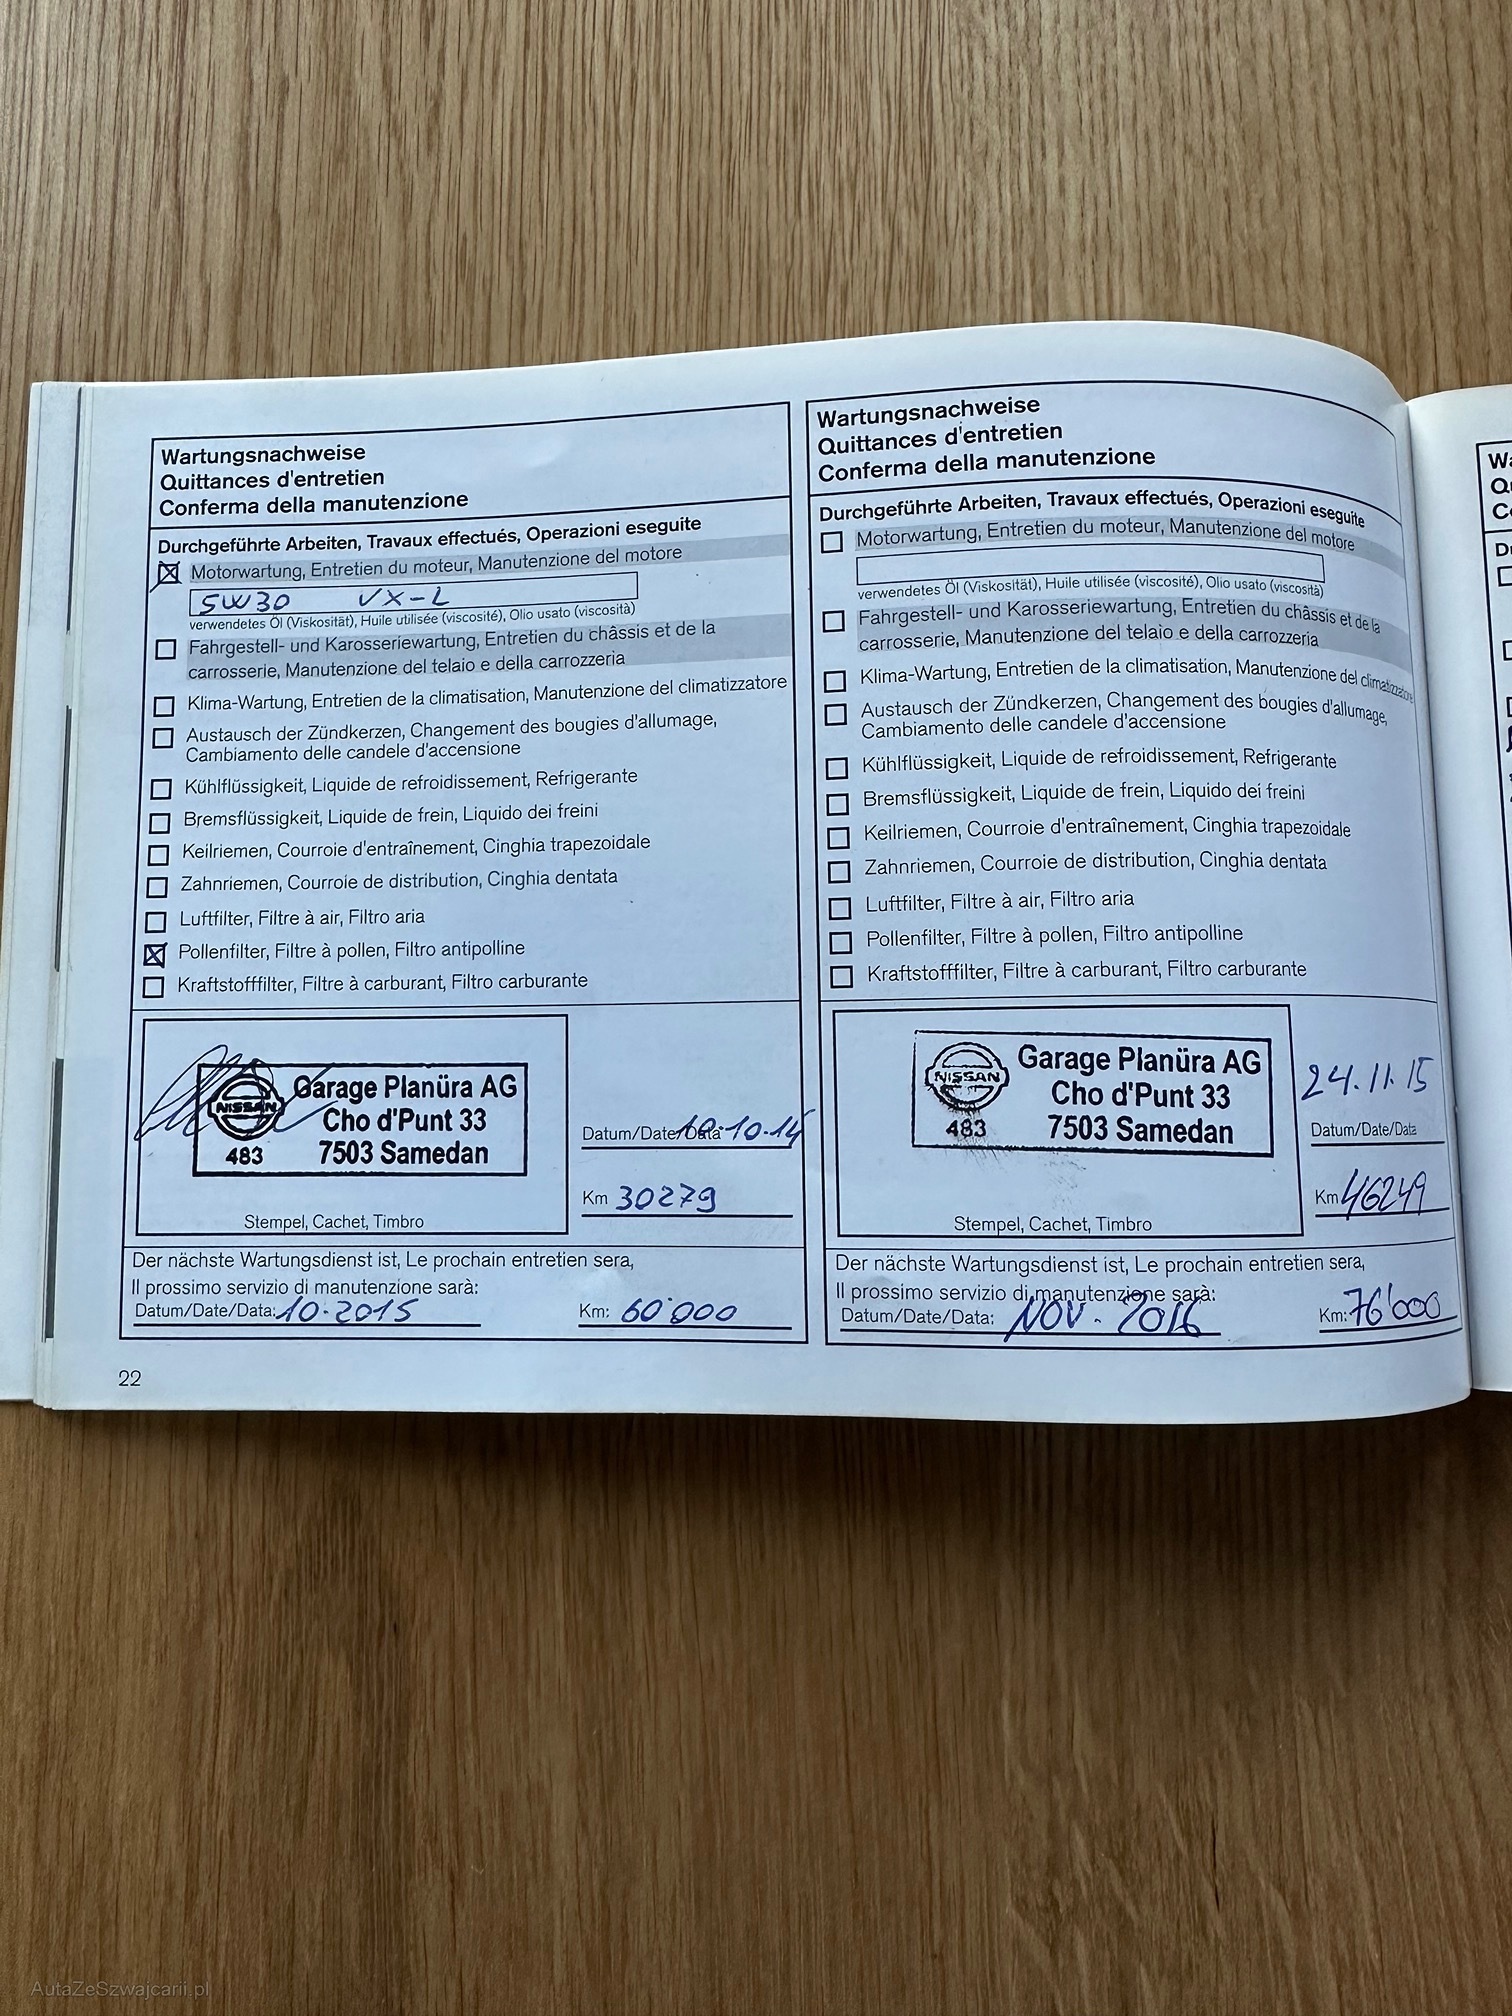 Wartungsnachweise
Quittances d'entretien
Conferma della manutenzione
Durchgeführte Arbeiten, Travaux effectués, Operazioni eseguite
Motorwartung, Entretien du moteur, Manutenzione del motore
5W30 VX-L
verwendetes Öl (Viskosität), Huile utilisée (viscosité), Olio usato (viscosità)
Fahrgestell- und Karosseriewartung, Entretien du châssis et de la
carrosserie, Manutenzione del telaio e della carrozzeria
Klima-Wartung, Entretien de la climatisation, Manutenzione del climatizzatore
Austausch der Zündkerzen, Changement des bougies d'allumage,
Cambiamento delle candele d'accensione
Kühlflüssigkeit, Liquide de refroidissement, Refrigerante
Bremsflüssigkeit, Liquide de frein, Liquido dei freini
Keilriemen, Courroie d'entraînement, Cinghia trapezoidale
Zahnriemen, Courroie de distribution, Cinghia dentata
Luftfilter, Filtre à air, Filtro aria
Pollenfilter, Filtre à pollen, Filtro antipolline
Kraftstofffilter, Filtre à carburant, Filtro carburante
NISSAN
483
Garage Planüra AG
Cho d'Punt 33
7503 Samedan
Stempel, Cachet, Timbro
Datum/Date/Data 10.10.14
Km 30279
Der nächste Wartungsdienst ist, Le prochain entretien sera,
Il prossimo servizio di manutenzione sarà:
Datum/Date/Data: 10.2015 Km: 60'000
22
Wartungsnachweise
Quittances d'entretien
Conferma della manutenzione
Durchgeführte Arbeiten, Travaux effectués, Operazioni eseguite
Motorwartung, Entretien du moteur, Manutenzione del motore
verwendetes Öl (Viskosität), Huile utilisée (viscosité), Olio usato (viscosità)
Fahrgestell- und Karosseriewartung, Entretien du châssis et de la
carrosserie, Manutenzione del telaio e della carrozzeria
Klima-Wartung, Entretien de la climatisation, Manutenzione del climatizzatore
Austausch der Zündkerzen, Changement des bougies d'allumage,
Cambiamento delle candele d'accensione
Kühlflüssigkeit, Liquide de refroidissement, Refrigerante
Bremsflüssigkeit, Liquide de frein, Liquido dei freini
Keilriemen, Courroie d'entraînement, Cinghia trapezoidale
Zahnriemen, Courroie de distribution, Cinghia dentata
Luftfilter, Filtre à air, Filtro aria
Pollenfilter, Filtre à pollen, Filtro antipolline
Kraftstofffilter, Filtre à carburant, Filtro carburante
NISSAN
483
Garage Planüra AG
Cho d'Punt 33
7503 Samedan
Stempel, Cachet, Timbro
24.11.15
Datum/Date/Data
Km 46249
Der nächste Wartungsdienst ist, Le prochain entretien sera,
Il prossimo servizio di manutenzione sarà:
Datum/Date/Data: NOV. 2016 Km: 76'000
AutaZeSzwajcarii.pl